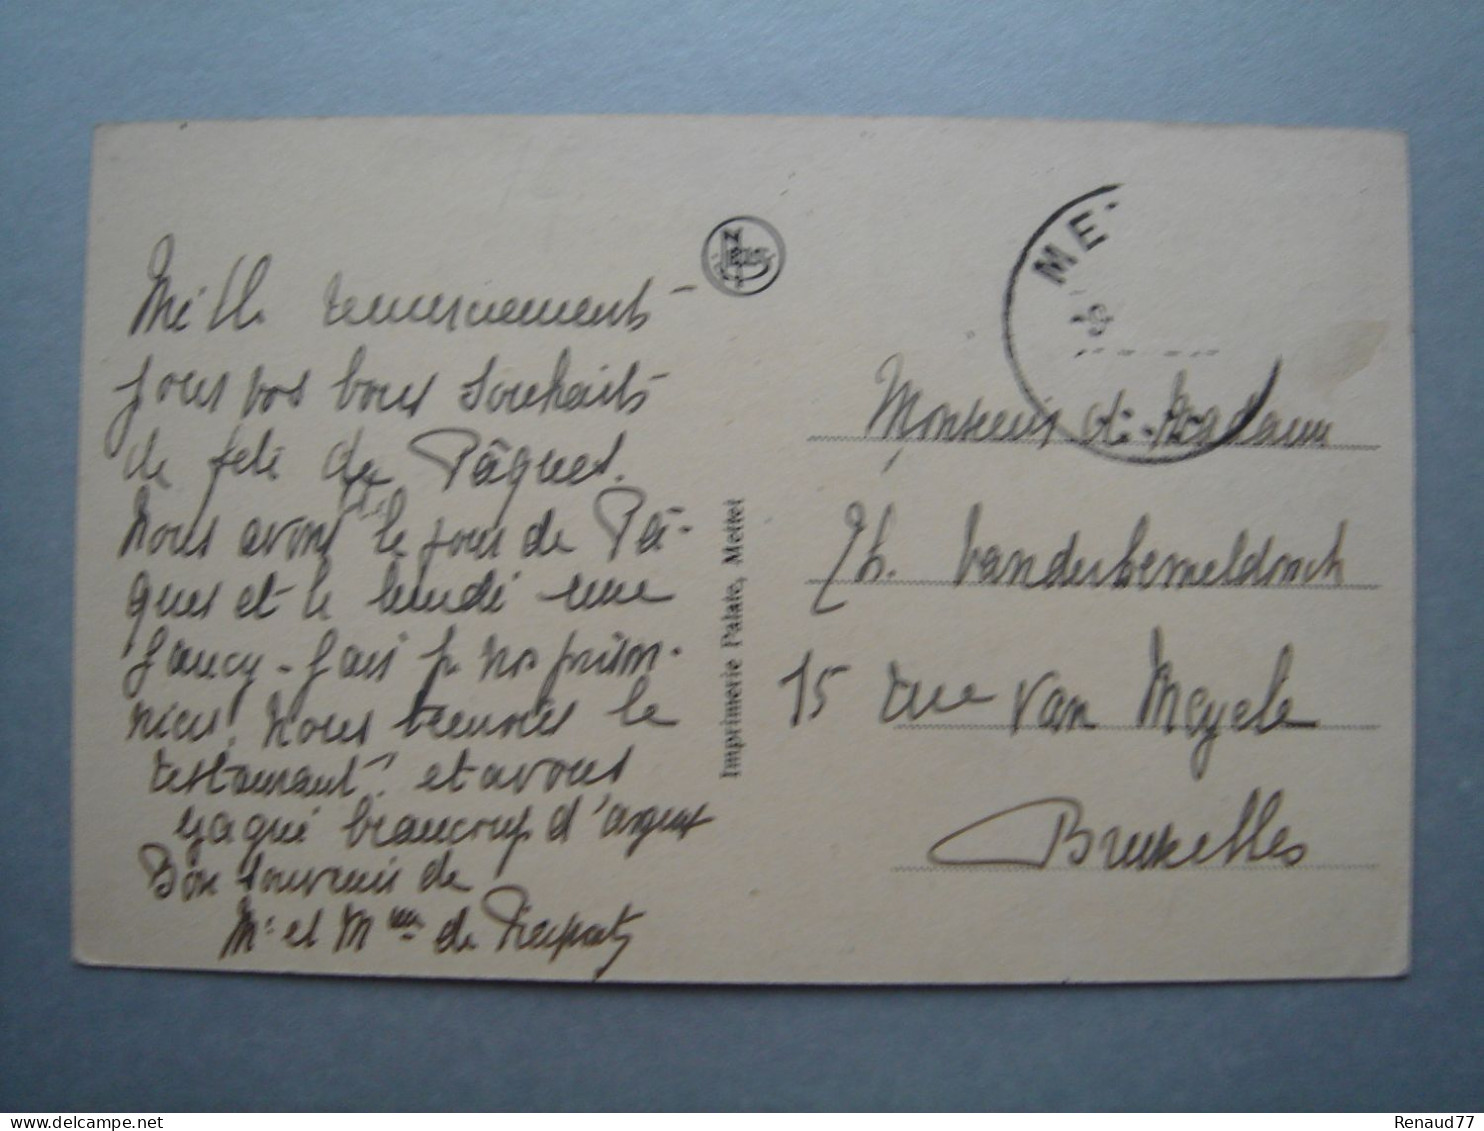 Mille remerciements
pour vos bons souhaits
de fête de Pâques.
Nous avons le jour de Pâ-
ques et le lundi une
Fancy-Fair pr nos prison-
niers! Nous tenions le
restaurant! et avons
gagné beaucoup d'argent
Bon souvenir de
Mr et Mme de
NELS
Imprimerie Palate, Mettet
ME
-9
Monsieur et Madame
Th. Vandenbemeldonck
15 rue Van Meyel
Bruxelles
delcampe.net
Renaud77